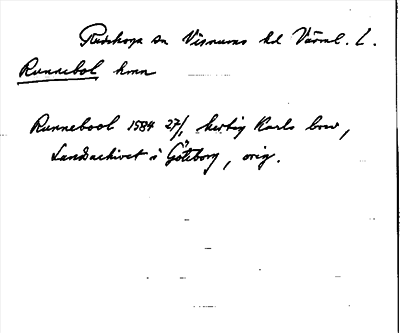 Rudskoga sn Visnums hd Värml. L.
Runnebol hmn
Runnebool 1584 27/1 hertig Karls brev,
Landsarkivet i Göteborg, orig.